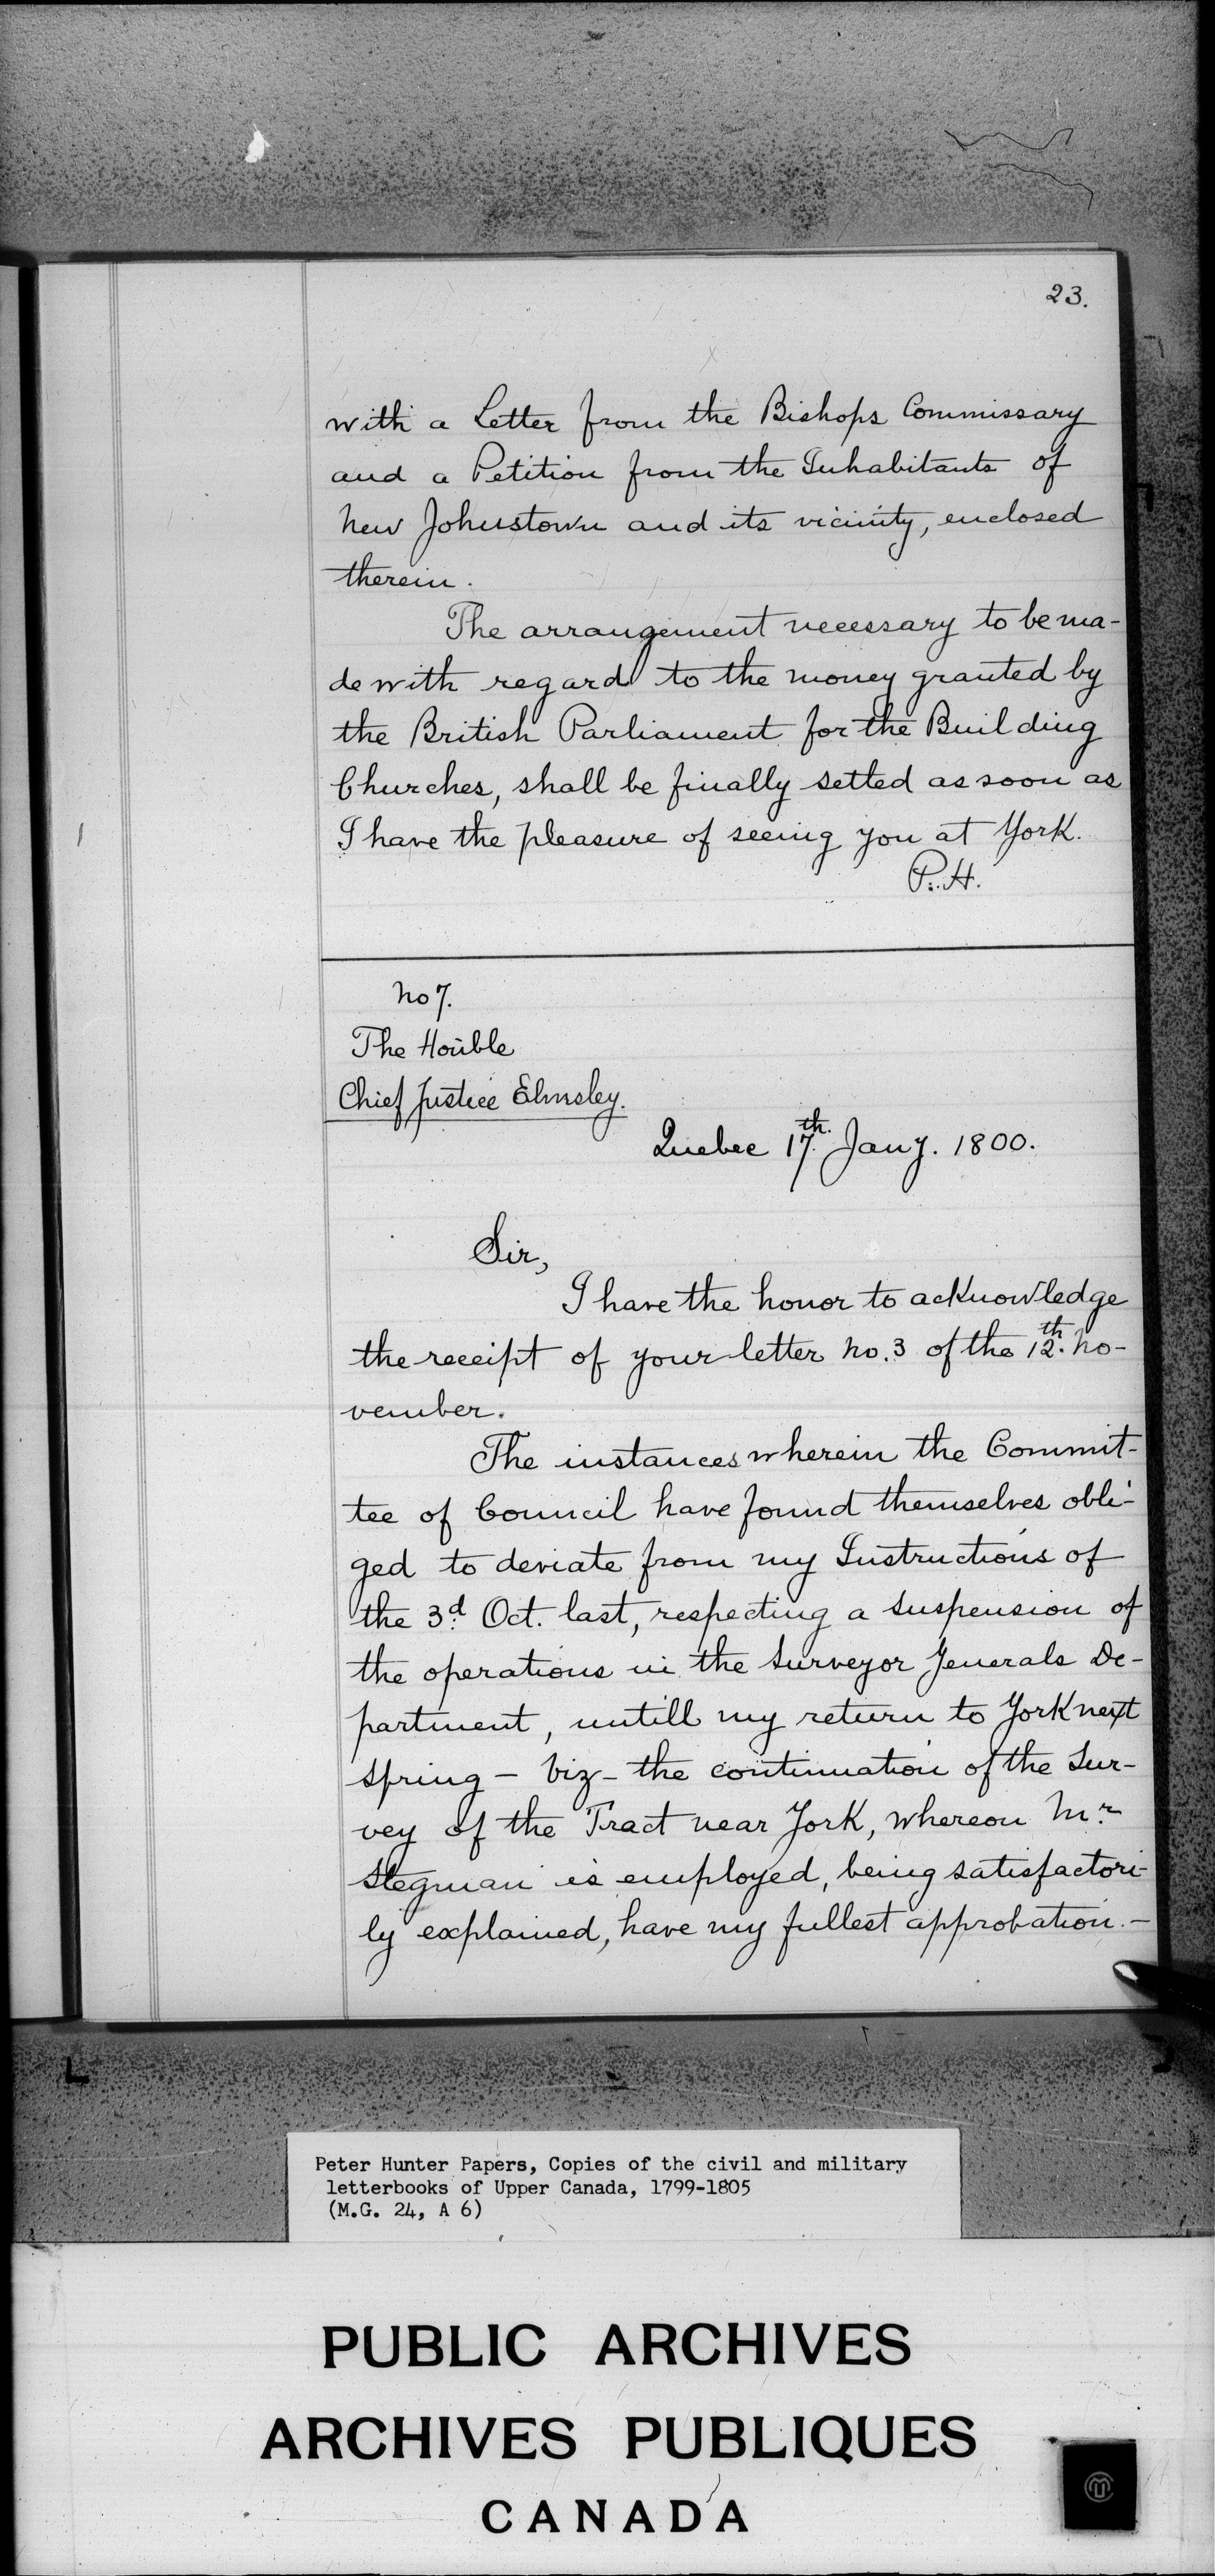 23.
with a Letter from the Bishops Commissary
and a Petition from the Inhabitants of
New Johnstown and its vicinity, enclosed
therein.
The arrangement necessary to be ma-
de with regard to the money granted by
the British Parliament for the Building
Churches, shall be finally setled as soon as
I have the pleasure of seeing you at York.
P. H.
No 7.
The Honble
Chief Justice Elmsley.
Quebec 17th. Jany. 1800.
Sir,
I have the honor to acknowledge
the receipt of your letter No. 3 of the 12th. No-
vember.
The instances wherein the Commit-
tee of Council have found themselves obli-
ged to deviate from my Instructions of
the 3d. Oct. last, respecting a suspension of
the operations in the Surveyor Generals De-
partment, untill my return to York next
Spring - Viz - the continuation of the Sur-
vey of the Tract near York, whereon Mr.
Stegman is employed, being satisfactori-
ly explained, have my fullest approbation. -
Peter Hunter Papers, Copies of the civil and military
letterbooks of Upper Canada, 1799-1805
(M.G. 24, A 6)
PUBLIC ARCHIVES
ARCHIVES PUBLIQUES
CANADA